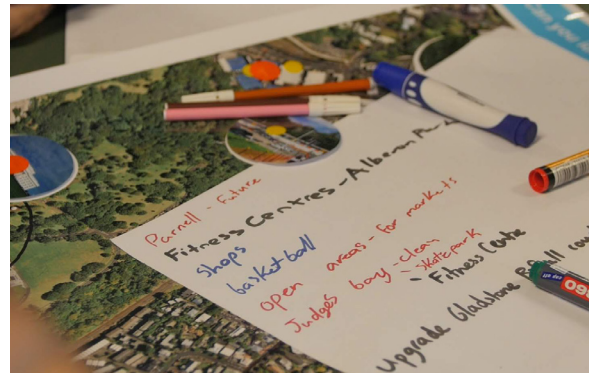 Parnell - Future
Fitness Centres - Alberon Par
shops
basketball
open areas - for markets
Judges bay - clean
- skatepark
- Fitness Centre
Upgrade Gladstone